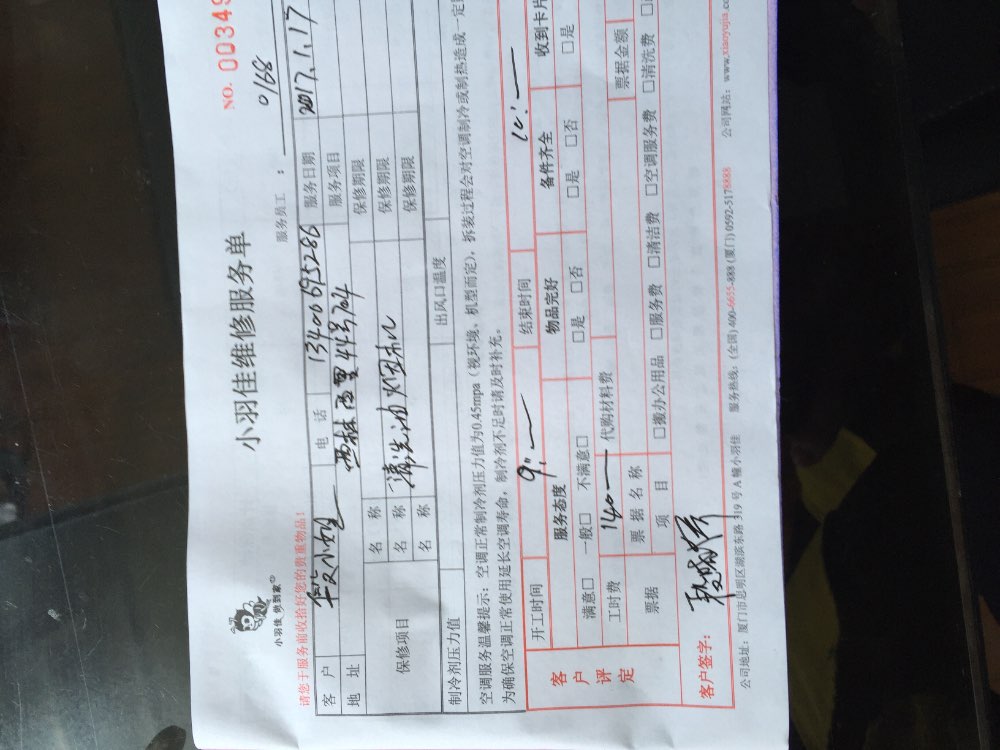 NO. 00349
小羽佳 快到家
小羽佳维修服务单
服务员工：0168
请您于服务前收拾好您的贵重物品！
客户 段小姐 电话 13400695286 服务日期 2017.1.17
地址 西林西里44号704 服务项目
保修项目 名称 保修期限
名称 清洗油烟机 保修期限
名称 保修期限
制冷剂压力值 出风口温度
空调服务温馨提示：空调正常制冷剂压力值为0.45mpa（视环境、机型而定），拆装过程会对空调制冷或制热造成一定
为确保空调正常使用延长空调寿命，制冷剂不足时请及时补充。
客户评定
开工时间 9: 结束时间 10:
服务态度 物品完好 备件齐全 收到卡片
满意□ 一般□ 不满意□ □是 □否 □是 □否 □是
工时费 140 代购材料费
票据 票据名称 票据金额
项目 □搬办公用品 □服务费 □清洁费 □空调服务费 □清洗费
客户签字：
公司地址：厦门市思明区湖滨东路319号A幢小羽佳 服务热线：(全国) 400-6655-888 (厦门) 0592-5178888 公司网站：www.xiaoyujia.co